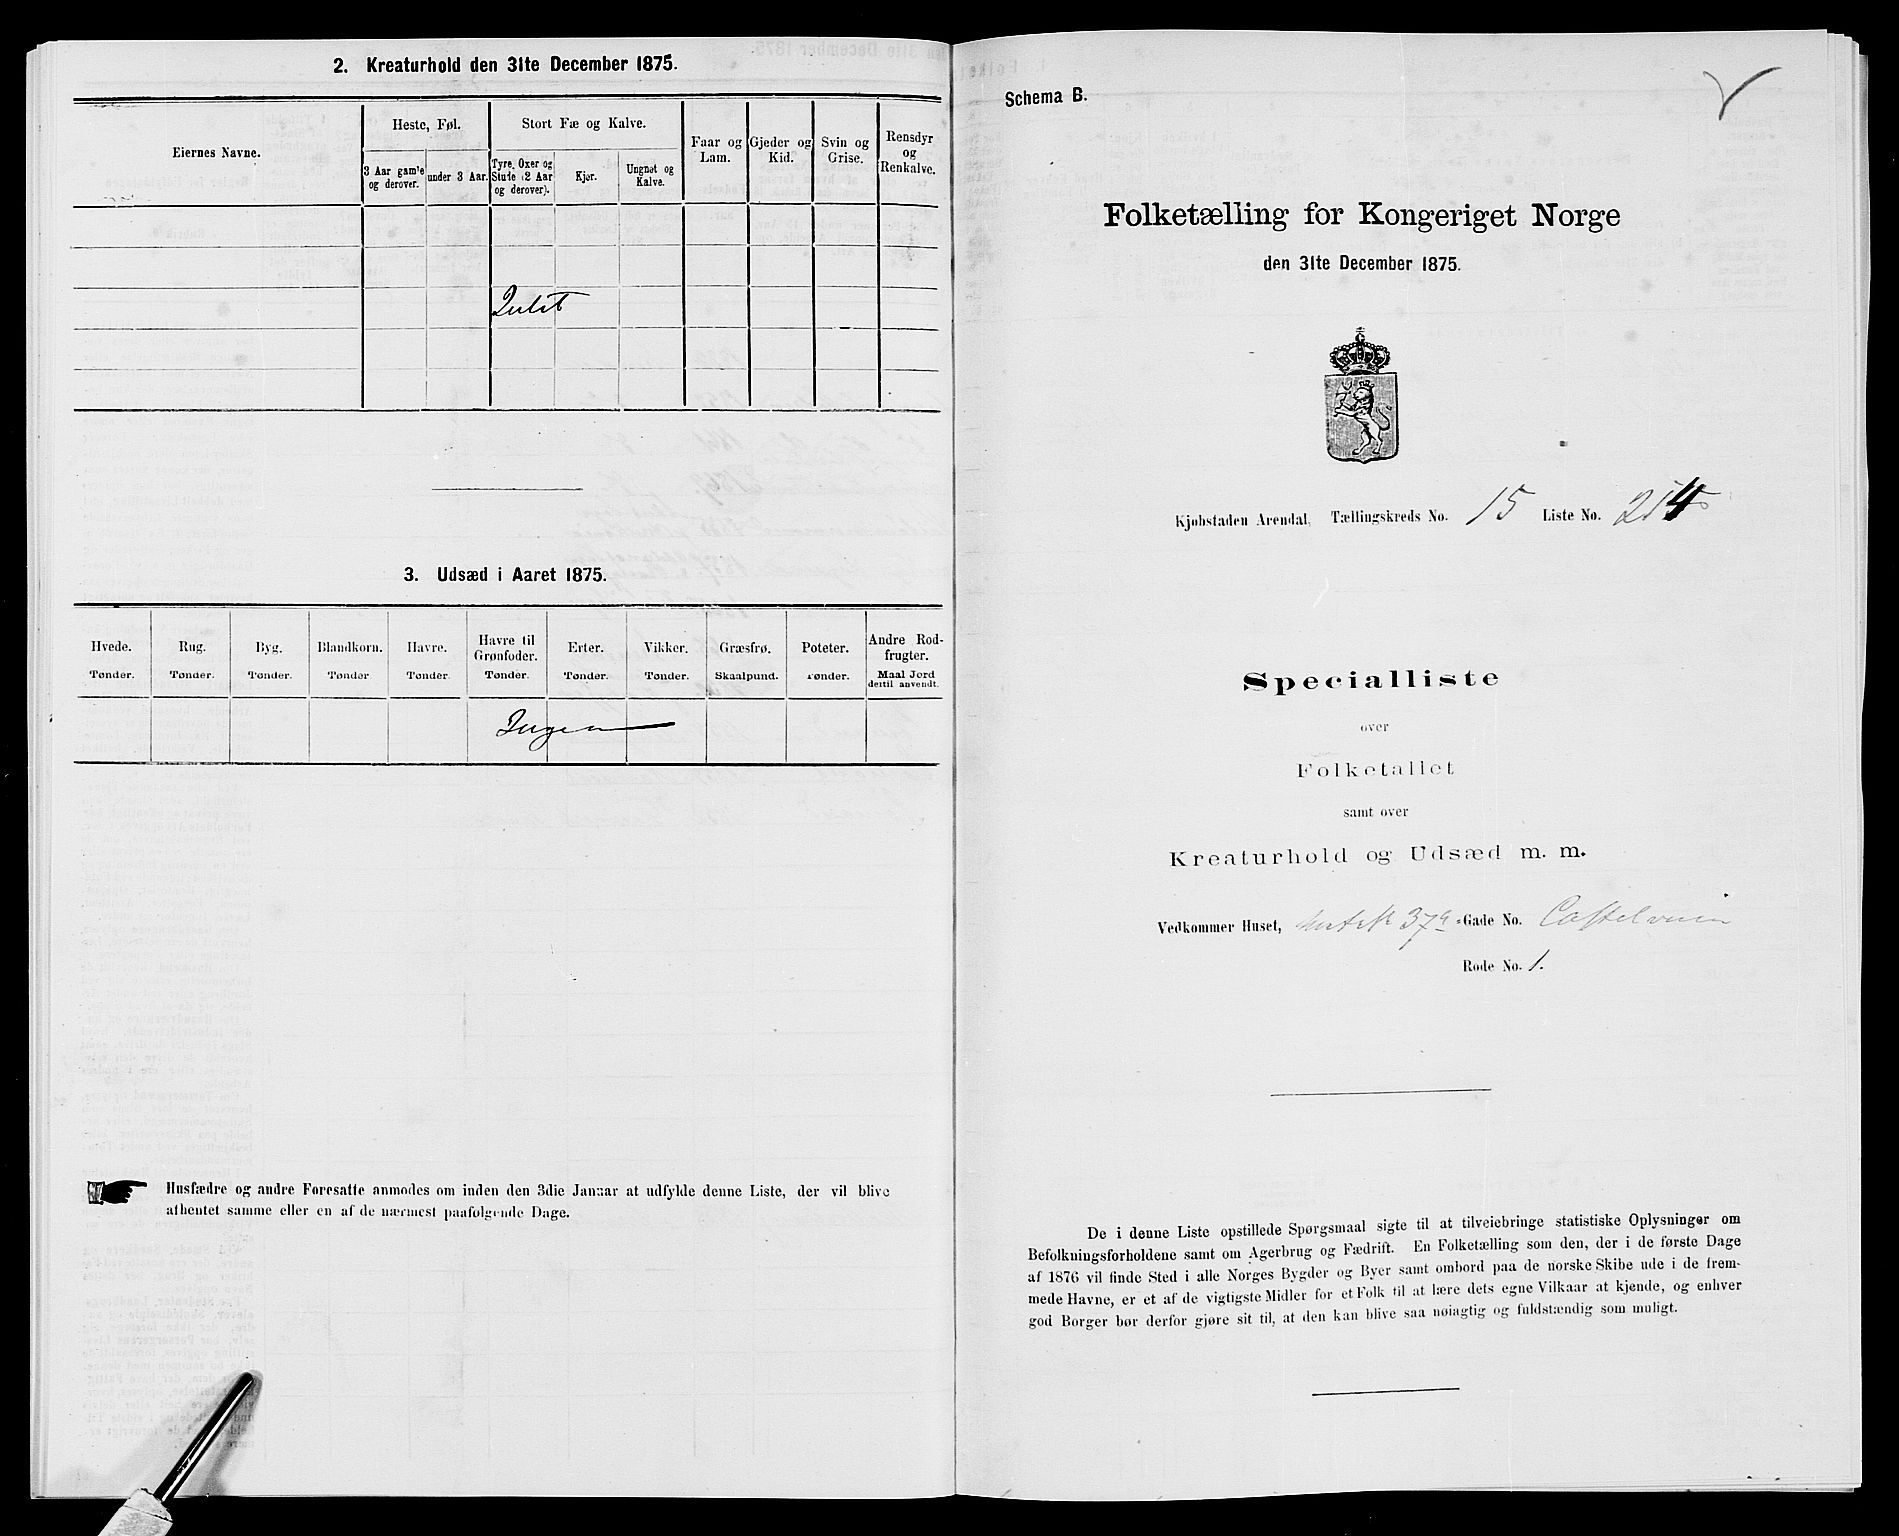 2. Kreaturhold den 31te December 1875.
Eiernes Navne.
Heste, Føl.
Stort Fæ og Kalve.
Faar og Lam.
Gjeder og Kid.
Svin og Grise.
Rensdyr og Renkalve.
3 Aar gam'le og derover.
under 3 Aar.
Tyre, Oxer og Stude (2 Aar og derover).
Kjør.
Ungnøt og Kalve.
Intet
3. Udsæd i Aaret 1875.
Hvede. Rug. Byg. Blandkorn. Havre. Havre til Grønfoder. Erter. Vikker. Græsfrø. Poteter. Andre Rodfrugter.
Tønder. Tønder. Tønder. Tønder Tønder. Tønder. Tønder. Tønder. Skaalpund. Tønder. Maal Jord dertil anvendt.
Ingen
Husfædre og andre Foresatte anmodes om inden den 3die Januar at udfylde denne Liste, der vil blive
afhentet samme eller en af de nærmest paafølgende Dage.
Schema B.
Folketælling for Kongeriget Norge
den 31te December 1875.
Kjøbstaden Arendal, Tællingskreds No. 15 Liste No.
Specialliste
over
Folketallet
samt over
Kreaturhold og Udsæd m. m.
Vedkommer Huset, Matr. No 37a -Gade No. Castelveien
Rode No. 1.
De i denne Liste opstillede Spørgsmaal sigte til at tilveiebringe statistiske Oplysninger om
Befolkningsforholdene samt om Agerbrug og Fædrift. En Folketælling som den, der i de første Dage
af 1876 vil finde Sted i alle Norges Bygder og Byer samt ombord paa de norske Skibe ude i de frem-
mede Havne, er et af de vigtigste Midler for et Folk til at lære dets egne Vilkaar at kjende, og enhver
god Borger bør derfor gjøre sit til, at den kan blive saa nøiagtig og fuldstændig som muligt.